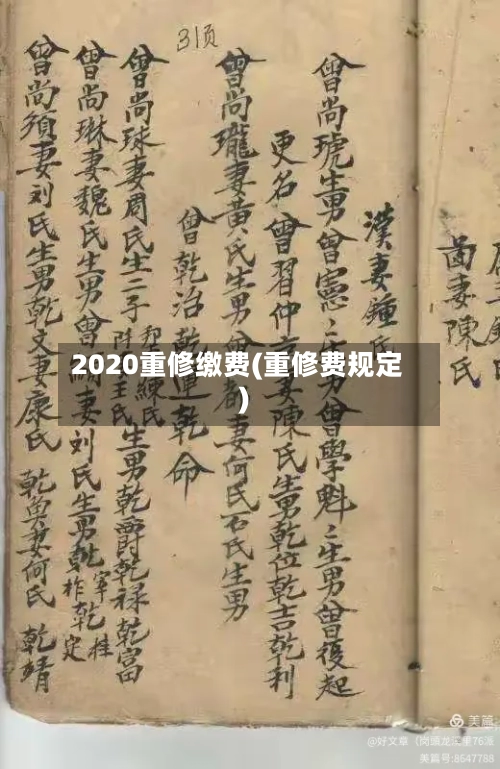 31页
圖妻陳氏
漢妻鍾氏
曾尚琥生男曾憲
生男曾學魁
生男曾復起
更名曾習仲
妻陳氏生男乾位乾吉乾利
曾尚瓏妻黄氏生男曾
妻何氏石氏生男
曾乾治
乾運乾命
曾尚珠妻周氏生二子
生男乾爵乾禄乾富
曾尚琳妻魏氏生男曾
妻刘氏生男乾
曾尚須妻刘氏生男乾文妻康氏
乾與妻何氏
乾靖
2020重修缴费(重修费规定
)
美篇
@好文章
美篇号:8547788